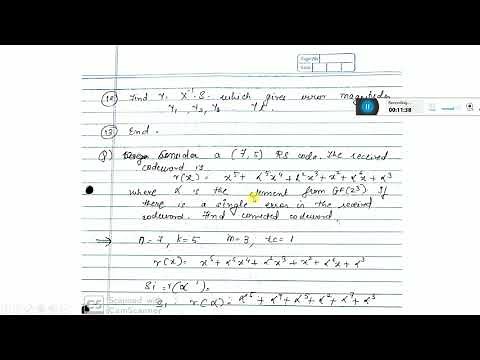 Page No.
Date
(12) Find Y = X⁻¹ . S - which gives error magnitudes
Y1 , Y2, Y3
(13) End .
Recording...
00:11:38
Q) Consider a (7, 5) RS code. The received
codeword is
r(x) = x⁵ + α⁵x⁴ + α²x³ + x² + α⁶x + α³
where α is the element from GF(2³). If
there is a single error in the received
codeword. Find corrected codeword.
→ n = 7, k = 5 m = 3, tc = 1
r(x) = x⁵ + α⁵x⁴ + α²x³ + x² + α⁶x + α³
Si = r(αⁱ) =
S1 r(α) = α⁵ + α⁹ + α⁵ + α² + α⁷ + α³
Scanned with
CamScanner